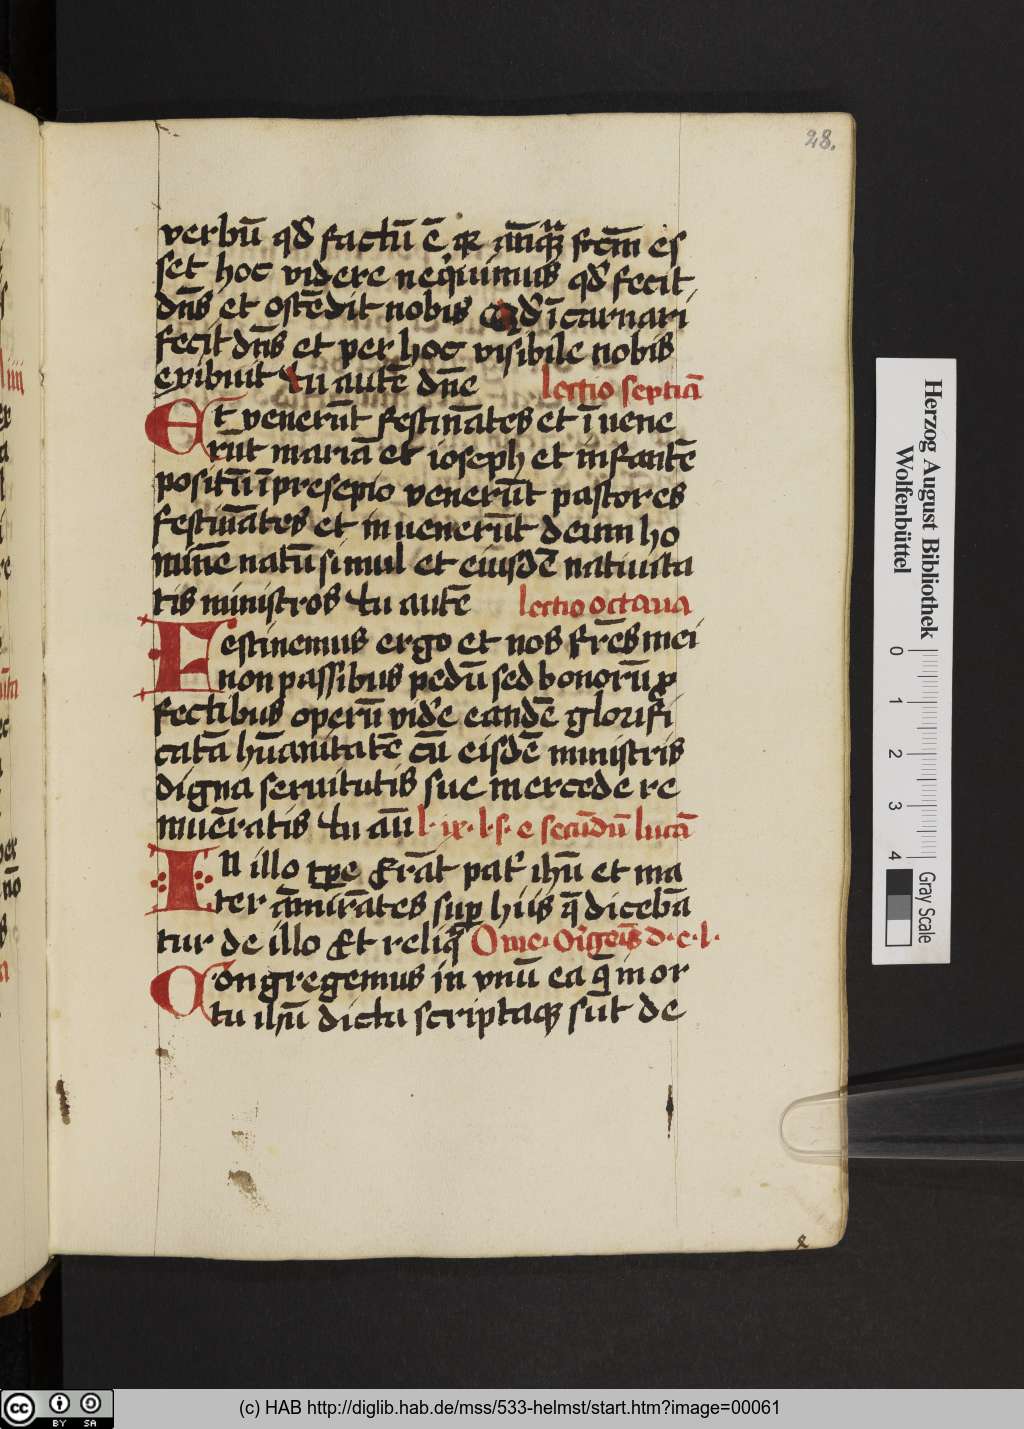 28.
verbū qd̄ factū ē qr̄ anq̄ fcm̄ es
set hoc videre neqͥuimus qd̄ fecit
dn̄s et ostēdit nobis Qd̄ īcarnari
fecit dn̄s et per hoc visibile nobis
exibuit tu autē dn̄e lectio septīa
Et venerūt festināntes et īuene
rūt mariā et ioseph et infantē
positū īpresepio venerūt pastores
festinātes et inuenerūt deum ho
minē natū simul et eiusdē natiuita
tis ministros tu autē lectio octaua
Festinemus ergo et nos frēs mei
non passibus pedū sed bonorū ꝓ
fectibus operū vidr̄e eandē glorifi
catā hūanitatē cū eisdē ministris
digna seruitutis sue mercede re
muēratis tu aū l· ix· l·s· e secūdū lucā
In illo tp̄e Erāt pat̄ ihū et ma
ter āmirātes suꝑ hiis q̄ dicebā
tur de illo Et reliq̄ Ome· Origeīs d·e·l·
Congregemus in vnū ea q̄ in or
tu ihū dicta scriptaqꝫ sūt de
Herzog August Bibliothek
Wolfenbüttel
0 1 2 3 4
Gray Scale
cc BY SA
(c) HAB http://diglib.hab.de/mss/533-helmst/start.htm?image=00061